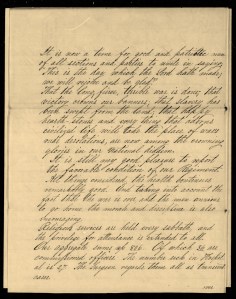 It is now a time for good and patriotic men
of all sections and parties to unite in saying
"This is the day which the Lord hath made,
we will rejoice and be glad."
That the long, fierce, terrible war is done, that
victory crowns our banners, that slavery has
been swept from the land, that happy
hearth stones and every thing that adorns
civilized life will take the place of wars
and desolations, are now among the crowning
glories in our National wisdom.
It is still my good pleasure to report
the favorable condition of our Regiment.
All things considered, the health continues
remarkably good. And taking into account the
fact that the war is over, and the men anxious
to go home the morals and discipline is also
encouraging.
Religious services are held every sabbath, and
the privilege for attendance is extended to all.
Our aggregate sums up 886. Of which 34 are
commissioned officers. The number sick in Hospital
is 27. The Surgeon regards them all as convales